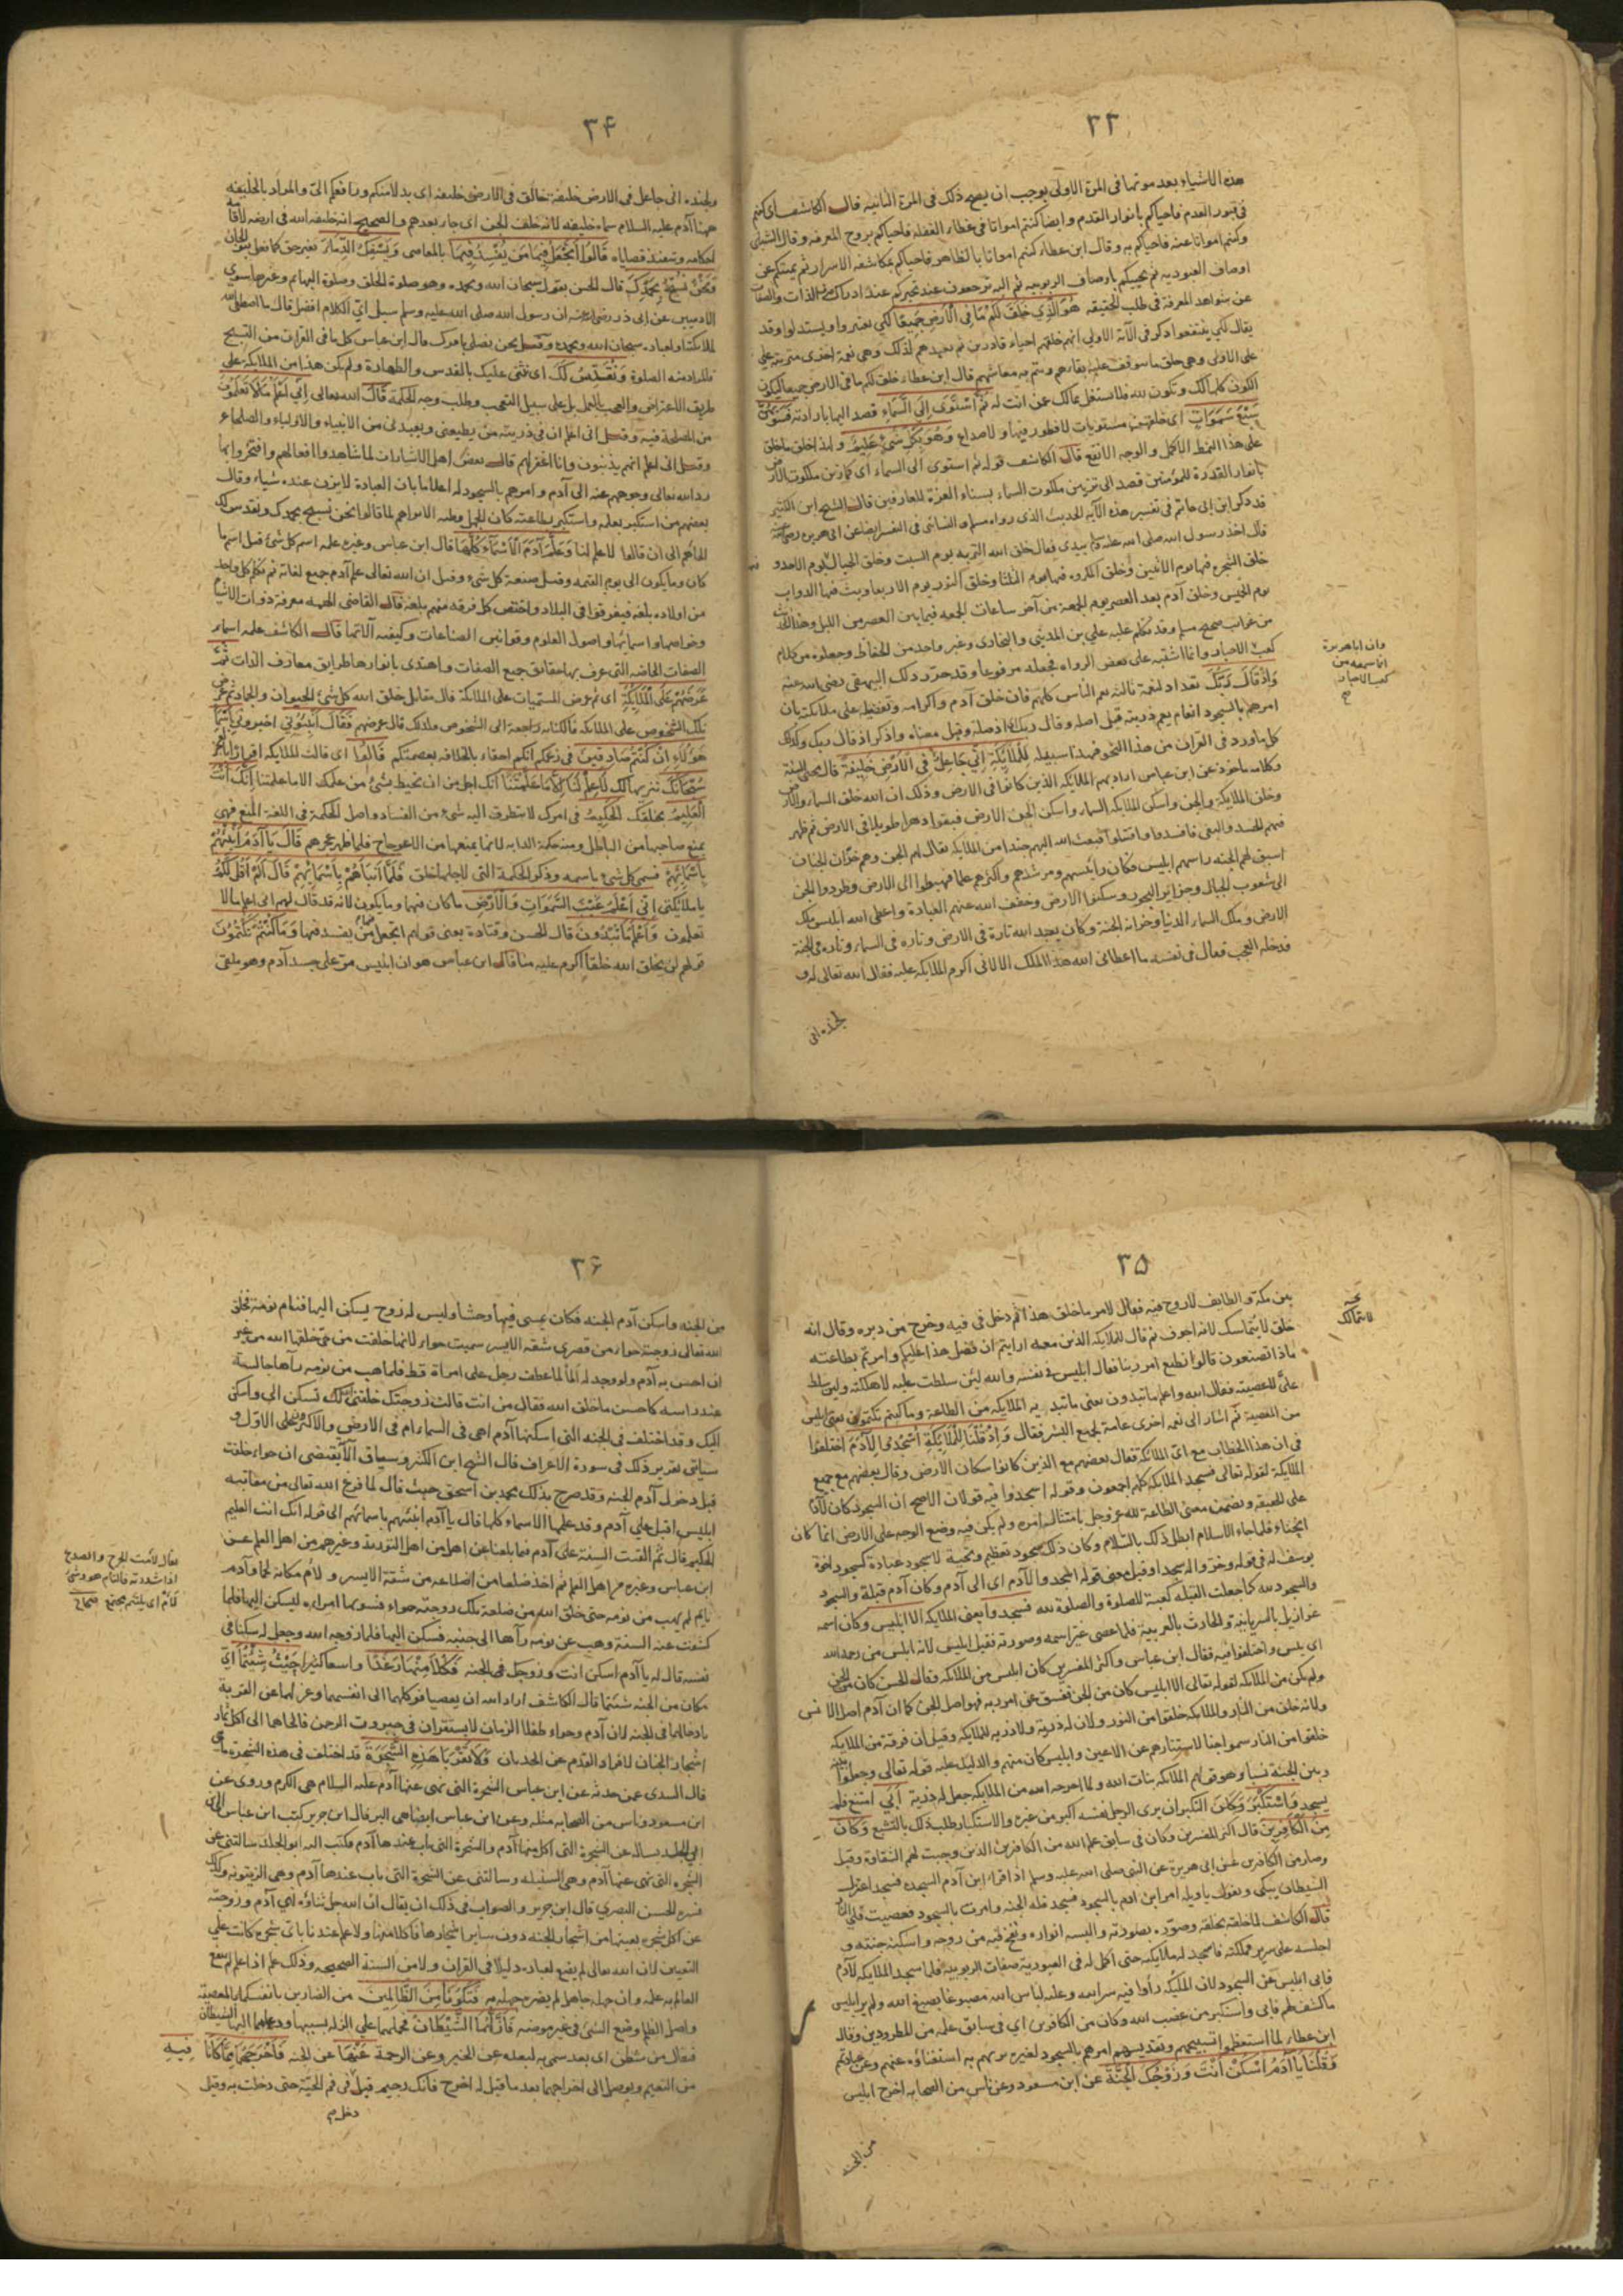 ٣٣
هذه الاشياء بعد موتها في المرة الاولى يوجب ان يصح ذلك في المرة الثانيه قال الكاشف اى كنتم
في قبور العدم فاحياكم بانوار القدم وايضا كنتم امواتا في غطاء الغفلة فاحياكم بروح المعرفه وقال الشبلى
وكنتم امواتا عنه فاحياكم به وقال ابن عطاء كنتم امواتا بالظاهر فاحياكم بمكاشفه الاسرار ثم يميتكم عن
اوصاف العبوديه ثم يحييكم باوصاف الربوبيه ثم اليه ترجعون عند تحيركم عند ادراك الذات والصفات
عن شواهد المعرفة في طلب الحقيقه هُوَ الَّذِي خَلَقَ لَكُمْ مَا فِي الْأَرْضِ جَمِيعًا لكي تعتبروا ويستدلوا وقد
يقال لكي ينتفعوا ذكر في الآية الاولى انهم خلقهم احياء قادرين ثم يعيدهم لذلك وهي نعمة اخرى مترتبة على
على الاولى وهي خلق ما يتوقف عليه بقاءهم ويتم به معاشهم قال ابن عطاء خلق لكم ما في الارض جميعا ليكون
الكون كله لك وتكون لله فلا تشتغل بمالك عن انت له ثُمَّ اسْتَوَى إِلَى السَّمَاءِ قصد اليها بارادته فَسَوَّاهُنَّ
سَبْعَ سَمَوَاتٍ اى خلقهن مستويات لا فطور فيها ولا صداع وَهُوَ بِكُلِّ شَيْءٍ عَلِيمٌ ولذا خلق ما خلق
على هذا النمط الاكمل والوجه الانفع قال الكاشف قوله ثم استوى الى السماء اى كما زين ملكوت الارض
بانهار القدرة للمؤمنين قصد الى تزيين ملكوت السماء بسناء العزة للعارفين قال الشيخ ابن الكثير
قد ذكر ابن ابى حاتم في تفسير هذه الآيه الحديث الذى رواه مسلم والنسائى في التفسير ايضا عن ابى هريره رضى الله عنه
قال اخذ رسول الله صلى الله عليه وسلم بيدى فقال خلق الله التربه يوم السبت وخلق الجبال يوم الاحد و
خلق الشجره فيها يوم الاثنين وخلق المكروه فيها يوم الثلثا وخلق النور يوم الاربعا وبث فيها الدواب
يوم الخميس وخلق آدم بعد العصر يوم الجمعة من آخر ساعات الجمعه فيما بين العصر من الليل وهذا الحديث
من غرائب صحيح مسلم وقد تكلم عليه على بن المدينى والبخارى وغير واحد من الحفاظ وجعلوه من كلام
كعب الاحبار وانما اشتبه على بعض الرواه فجعله مرفوعا وقد حرر ذلك البيهقى رضى الله عنه
وان اباهريرة
انما سمعه من
كعب الاحبار
وَإِذْ قَالَ رَبُّكَ تعداد لنعمة ثالثه تعم الناس كلهم فان خلق آدم واكرامه وتفضيله على ملائكته بان
امرهم بالسجود انعام يعم ذريته قبل اصله وقال ربك اذ صلة وقيل معناه واذكر اذ قال ربك وكذلك
كل ما ورد في القران من هذا النحو فهذا سبيله لِلْمَلَائِكَةِ إِنِّي جَاعِلٌ فِي الْأَرْضِ خَلِيفَةً قال محيى السنة
وكلامه ماخوذ عن ابن عباس اراد بهم الملايكه الذين كانوا في الارض وذلك ان الله خلق السماء والارض
وخلق الملايكة والجن واسكن الملايكه السماء واسكن الجن الارض فبقوا دهرا طويلا في الارض ثم ظهر
فيهم الحسد والبغى فافسدوا واقتتلوا فبعث الله اليهم جندا من الملايكه يقال لهم الجن وهم خزّان الجنان
اسبق لهم الجنه راسهم ابليس فكان رئيسهم ومرشدهم واكثرهم علما فهبطوا الى الارض وطردوا الجن
الى شعوب الجبال وجزاير البحور وسكنوا الارض وخفف الله عنهم العبادة واعطى الله ابليس ملك
الارض وملك السماء الدنيا وخزانة الجنة وكان يعبد الله تارة في الارض وتاره في السماء وتاره في الجنة
فدخله العجب فقال في نفسه ما اعطانى الله هذا الملك الا لانى اكرم الملايكه عليه فقال الله تعالى له و
لجنده انى
٣۴
ولجنده انى جاعل في الارض خليفة خالق في الارض خليفه اى بدلا منكم ورافعكم الىّ والمراد بالخليفه
ههنا آدم عليه السلام سماه خليفه لانه خلف الجن اى جاء بعدهم والصحيح انه خليفه الله في ارضه لاقامة
احكامه وتنفيذ قضاياه قَالُوا أَتَجْعَلُ فِيهَا مَنْ يُفْسِدُ فِيهَا بالمعاصى وَيَسْفِكُ الدِّمَاءَ بغير حق كما فعل بنو الجان
وَنَحْنُ نُسَبِّحُ بِحَمْدِكَ قال الحسن يقول سبحان الله وبحمده وهو صلوة الخلق وصلوة البهايم وغيرها سوى
الادميين عن ابى ذر رضى الله عنه ان رسول الله صلى الله عليه وسلم سيل اىّ الكلام افضل قال ما اصطفى الله
لملائكته او لعباده سبحان الله وبحمده وقيل نحن نصلى بامرك قال ابن عباس كل ما في القران من التسبيح
فالمراد منه الصلوة وَنُقَدِّسُ لَكَ اى نثنى عليك بالقدس والطهارة ولم يكن هذا من الملايكة على
طريق الاعتراض والعجب بالعمل بل على سبيل التعجب وطلب وجه الحكمة قَالَ الله تعالى إِنِّي أَعْلَمُ مَا لَا تَعْلَمُونَ
من المصلحة فيه وقيل انى اعلم ان في ذريته من يطيعنى ويعبدنى من الانبياء والاولياء والصلحاء
وقيل انى اعلم انهم يذنبون وانا اغفر لهم قال بعض اهل الاشارات لما شاهدوا افعالهم وافتخروا بها
رد الله تعالى وجوههم عنه الى آدم وامرهم بالسجود له اعلاما بان العبادة لا يزن عنده شياء وقال
بعضهم من استكبر بعلمه واستكبر بطاعته كان الجهل وطنه الا تراهم لما قالوا نحن نسبح بحمدك ونقدس لك
الجاهم الى ان قالوا لا علم لنا وَعَلَّمَ آدَمَ الْأَسْمَاءَ كُلَّهَا قال ابن عباس وغيره علمه اسم كل شئ قيل اسم ما
كان وما يكون الى يوم القيمه وقيل صنعة كل شئ وقيل ان الله تعالى علم آدم جميع لغاته ثم تكلم كل واحد
من اولاده بلغه فتفرقوا في البلاد واختص كل فرقه منهم بلغه قال القاضى الهمه معرفة ذوات الاشياء
وخواصها واسمائها واصول العلوم وقوانين الصناعات وكيفيه آلاتها قال الكاشف علمه اسماء
الصفات الخاصه التى عرف بها حقايق جميع الصفات واهتدى بانوارها طرايق معارف الذات ثُمَّ
عَرَضَهُمْ عَلَى الْمَلَائِكَةِ اى ثم عرض المسميات على الملائكة قال مقاتل خلق الله كل شئ الحيوان والجماد ثم عرض
تلك الشخوص على الملايكه فالكنايه راجعة الى الشخوص فلذلك قال عرضهم فَقَالَ أَنْبِئُونِي اخبرونى بِأَسْمَاءِ
هَؤُلَاءِ إِنْ كُنْتُمْ صَادِقِينَ في زعمكم انكم احقاء بالخلافه بعصمتكم قَالُوا اى قالت الملايكه اقرارا بالعجز
سُبْحَانَكَ تنزيها لك لَا عِلْمَ لَنَا إِلَّا مَا عَلَّمْتَنَا انك اجل من ان نحيط بشئ من علمك الا ما علمتنا إِنَّكَ أَنْتَ
الْعَلِيمُ بخلقك الْحَكِيمُ في امرك لا يتطرق اليه شئ من الفساد واصل الحكمة في اللغة المنع فهى
يمنع صاحبها من الباطل ومنه حكمة الدابه لانها يمنعها من الاعوجاج فلما ظهر عجزهم قَالَ يَا آدَمُ أَنْبِئْهُمْ
بِأَسْمَائِهِمْ فسمى كل شئ باسمه وذكر الحكمة التى لاجلها خلق فَلَمَّا أَنْبَأَهُمْ بِأَسْمَائِهِمْ قَالَ أَلَمْ أَقُلْ لَكُمْ
يا ملايكتى إِنِّي أَعْلَمُ غَيْبَ السَّمَوَاتِ وَالْأَرْضِ ما كان فيهما وما يكون لانه قد قال لهم انى اعلم ما لا
تعلمون وَأَعْلَمُ مَا تُبْدُونَ قال الحسن وقتادة يعنى قولهم اتجعل فيها من يفسد فيها وَمَا كُنْتُمْ تَكْتُمُونَ
قولهم لن يخلق الله خلقا اكرم عليه منا قال ابن عباس هو ان ابليس مر على جسد آدم وهو ملقى
٣۵
بين مكة والطايف لا روح فيه فقال لامر ما خلق هذا ثم دخل في فيه وخرج من دبره وقال انه
خلق لا يتماسك لانه اجوف ثم قال للملايكه الذين معه ارايتم ان فضل هذا عليكم وامرتم بطاعته
لا يتمالك
ماذا تصنعون قالوا نطيع امر ربنا فقال ابليس في نفسه والله لئن سلطت عليه لاهلكنه ولئن سلط
علىّ لاعصينه فقال الله واعلم ما تبدون يعنى ما تبديه الملايكه من الطاعة وما كنتم تكتمون يعنى ابليس
من المعصية ثم اشار الى نعمه اخرى عامة لجميع البشر فقال وَإِذْ قُلْنَا لِلْمَلَائِكَةِ اسْجُدُوا لِآدَمَ اختلفوا
في ان هذا الخطاب مع اىّ الملائكة فقال بعضهم مع الذين كانوا سكان الارض وقال بعضهم مع جميع
الملايكة لقوله تعالى فسجد الملايكه كلهم اجمعون وقوله اسجدوا فيه قولان الاصح ان السجود كان لآدم
على الحقيقه ويضمن معنى الطاعة لله عز وجل بامتثال امره ولم يكن فيه وضع الوجه على الارض انما كان
انحناء فلما جاء الاسلام ابطل ذلك بالسلام وكان ذلك سجود تعظيم وتحية لا سجود عبادة كسجود اخوة
يوسف له في قوله وخروا له سجدا وقيل معنى قوله اسجدوا لآدم اى الى آدم وكان آدم قبلة والسجود
والسجود لله كما جعلت القبله كعبة للصلوة والصلوة لله فسجدوا يعنى الملايكه الا ابليس وكان اسمه
عزازيل بالسريانية والحارث بالعربية فلما عصى غير اسمه وصورته فقيل ابليس لانه ابلس من رحمة الله
اى يئس واختلفوا فيه فقال ابن عباس واكثر المفسرين كان ابليس من الملائكه وقال الحسن كان من الجن
ولم يكن من الملايكه لقوله تعالى الا ابليس كان من الجن ففسق عن امر ربه فهو اصل الجن كما ان آدم اصل الانس
ولانه خلق من النار والملايكه خلقوا من النور ولان له ذرية ولا ذريه للملايكه وقيل ان فرقة من الملايكه
خلقوا من النار سموا جنا لاستتارهم عن الاعين وابليس كان منهم والدليل عليه قوله تعالى وجعلوا بينه
وبين الجنة نسبا وهو قولهم الملايكه بنات الله ولما اخرجه الله من الملايكه جعل له ذرية أَبَى امتنع فلم
يسجد وَاسْتَكْبَرَ وَكَانَ التكبر ان يرى الرجل نفسه اكبر من غيره والاستكبار طلب ذلك بالتشبع وَكَانَ
مِنَ الْكَافِرِينَ قال اكثر المفسرين وكان في سابق علم الله من الكافرين الذين وجبت لهم الشقاوة وقيل
وصار من الكافرين عن ابى هريرة عن النبى صلى الله عليه وسلم اذا قراء ابن آدم السجده فسجد اعتزل
الشيطان يبكى ويقول يا ويله امر ابن آدم بالسجود فسجد فله الجنه وامرت بالسجود فعصيت فلى النار
قال الكاشف لما خلقه بخلقه وصوره بصورته والبسه انواره ونفخ فيه من روحه واسكنه جنته و
اجلسه على سرير مملكته فاسجد له ملايكته حتى اكمل له في العبودية صفات الربوبيه فلما سجد الملايكه لآدم
فابى ابليس عن السجود لان الملايكه رأوا فيه سر الله وعليه لباس الله مصبوغا بصبغ الله ولم ير ابليس
ما كشف لهم فابى واستكبر من غضب الله وكان من الكافرين اى في سابق علمه من المطرودين وقال
ابن عطاء لما استعظموا تسبيحهم وتقديسهم امرهم بالسجود لغيره يريهم به استغناؤه عنهم وعن عبادتهم
وَقُلْنَا يَا آدَمُ اسْكُنْ أَنْتَ وَزَوْجُكَ الْجَنَّةَ عن ابن مسعود وعن ناس من الصحابه اخرج ابليس
من الجنه
٣۶
من الجنه واسكن آدم الجنه فكان يمسى فيها وحشا وليس له زوج يسكن اليها فنام نومة فخلق
الله تعالى زوجته حواء من قصرى شقه الايسر سميت حواء لانها خلقت من حى خلقها الله من غير
ان احس به آدم ولو وجد له الما لما عطف رجل على امراة قط فلما هب من نومه رآها جالسة
عند راسه كاحسن ما خلق الله فقال من انت قالت زوجتك خلقنى الله لك تسكن الى واسكن
اليك وقد اختلف في الجنه التى اسكنها آدم اهى في السماء ام في الارض والاكثرون على الاول و
سياتى تقرير ذلك في سورة الاعراف قال الشيخ ابن الكثير وسياق الآية يقتضى ان حواء خلقت
قبل دخول آدم الجنه وقد صرح بذلك محمد بن اسحق حيث قال لما فرغ الله تعالى من معاتبه
ابليس اقبل على آدم وقد علمه الاسماء كلها فقال يا آدم انبئهم باسمائهم الى قوله انك انت العليم
الحكيم قال ثم القيت السنة على آدم فيما بلغنا عن اهل من اهل التورية وغيرهم من اهل العلم عن
ابن عباس وغيره من اهل العلم ثم اخذ ضلعا من اضلاعه من شقة الايسر ولأم مكانه لحما وآدم
يقال لأمت الجرح والصدع
اذا شددته فالتام هو وشئ
لأم اى ملتئم مجتمع صحاح
نايم لم يهب من نومه حتى خلق الله من ضلعه تلك زوجته حواء فسويها امراه ليسكن اليها فلما
كشفت عنه السنة وهب عن نومه رآها الى جنبه فسكن اليها فلما زوجه الله وجعل له سكنا في
نفسه قال له يا آدم اسكن انت وزوجك الجنه فَكُلَا مِنْهَا رَغَدًا واسعا كثيرا حَيْثُ شِئْتُمَا اىّ
مكان من الجنه شئتما قال الكاشف اراد الله ان يعصيا فوكلهما الى انفسهما وعزلهما عن القربة
بادخالهما في الجنه لان آدم وحواء طفلا الزمان لا يستقران في جبروت الرحمن فالجاهما الى اكل ثمار
اشجار الجنان لافراد القدم عن الحدثان وَلَا تَقْرَبَا هَذِهِ الشَّجَرَةَ قد اختلف في هذه الشجرة ما هى
قال السدى عمن حدثه عن ابن عباس الشجرة التى نهى عنها آدم عليه السلام هى الكرم وروى عن
ابن مسعود وناس من الصحابه مثله وعن ابن عباس ايضا هى البر قال ابن جرير كتب ابن عباس الى
ابى الجلد يساله عن الشجرة التى اكل منها آدم والشجرة التى تاب عندها آدم فكتب اليه ابو الجلد سالتنى عن
الشجره التى نهى عنها آدم وهى السنبله وسالتنى عن الشجرة التى تاب عندها آدم وهى الزيتونه وكذلك
فسره الحسن البصرى قال ابن جرير والصواب في ذلك ان يقال ان الله جل ثناؤه نهى آدم وزوجته
عن اكل شجره بعينها من اشجار الجنه دون ساير اشجارها فاكلا منها ولا علم عندنا باى شجره كانت على
التعيين لان الله تعالى لم يضع لعباده دليلا في القران ولا من السنة الصحيحه وذلك علم اذا علم لم ينفع
العالم به علمه وان جهله جاهل لم يضره جهله به فَتَكُونَا مِنَ الظَّالِمِينَ من الضارين بانفسكما بالمعصية
واصل الظلم وضع الشئ في غير موضعه فَأَزَلَّهُمَا الشَّيْطَانُ فحملهما على الزله بسببها ودعاهما اليها الشيطان
فيعال من شطن اى بعد سمى به لبعده عن الخير وعن الرحمة عَنْهَا عن الجنه فَأَخْرَجَهُمَا مِمَّا كَانَا فِيهِ
من النعيم وتوصل الى اخراجهما بعد ما قيل له اخرج فانك رجيم قيل في فم الحيّة حتى دخلت به وقيل
دخل